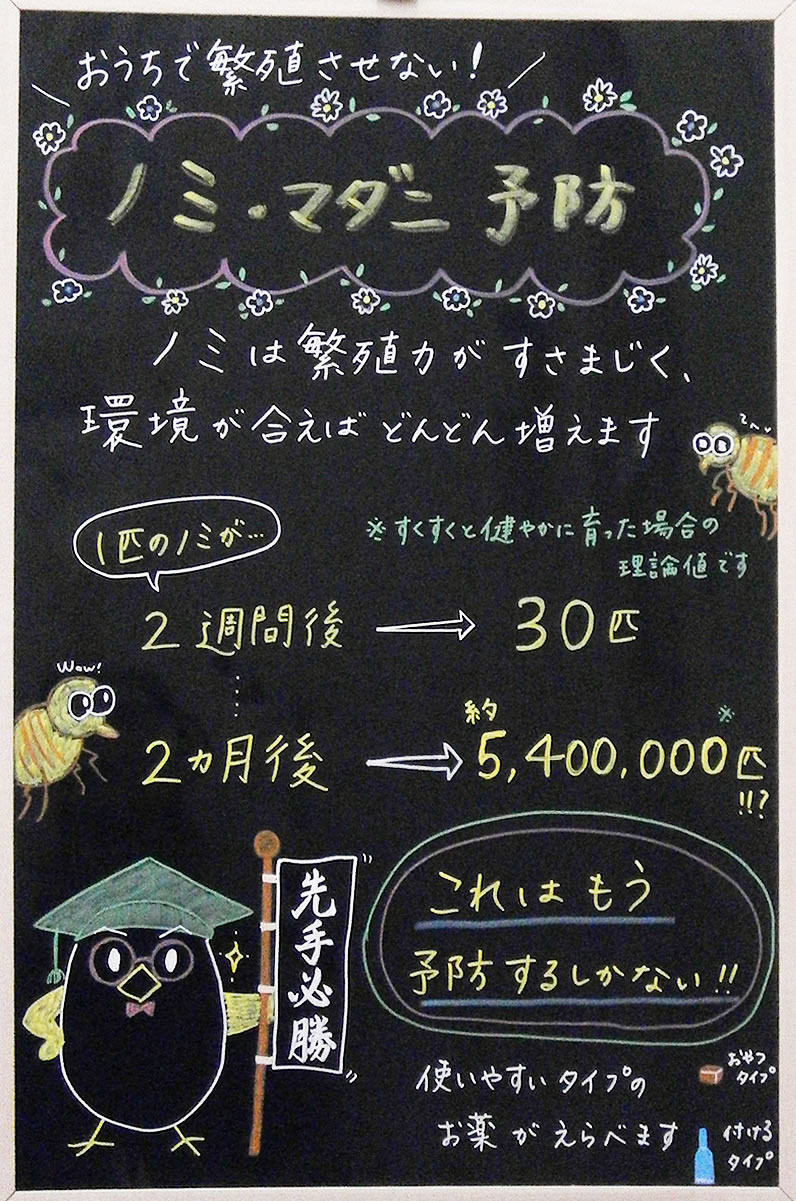 おうちで繁殖させない!
ノミ・マダニ 予防
ノミは繁殖力がすさまじく、
環境が合えばどんどん増えます
1匹のノミが…
※すくすくと健やかに育った場合の
理論値です
2週間後 → 30匹
Wow!
2ヵ月後 → 約5,400,000匹※
!!?
先手必勝
これはもう
予防するしかない!!
使いやすいタイプの
お薬がえらべます
おやつ
タイプ
付ける
タイプ